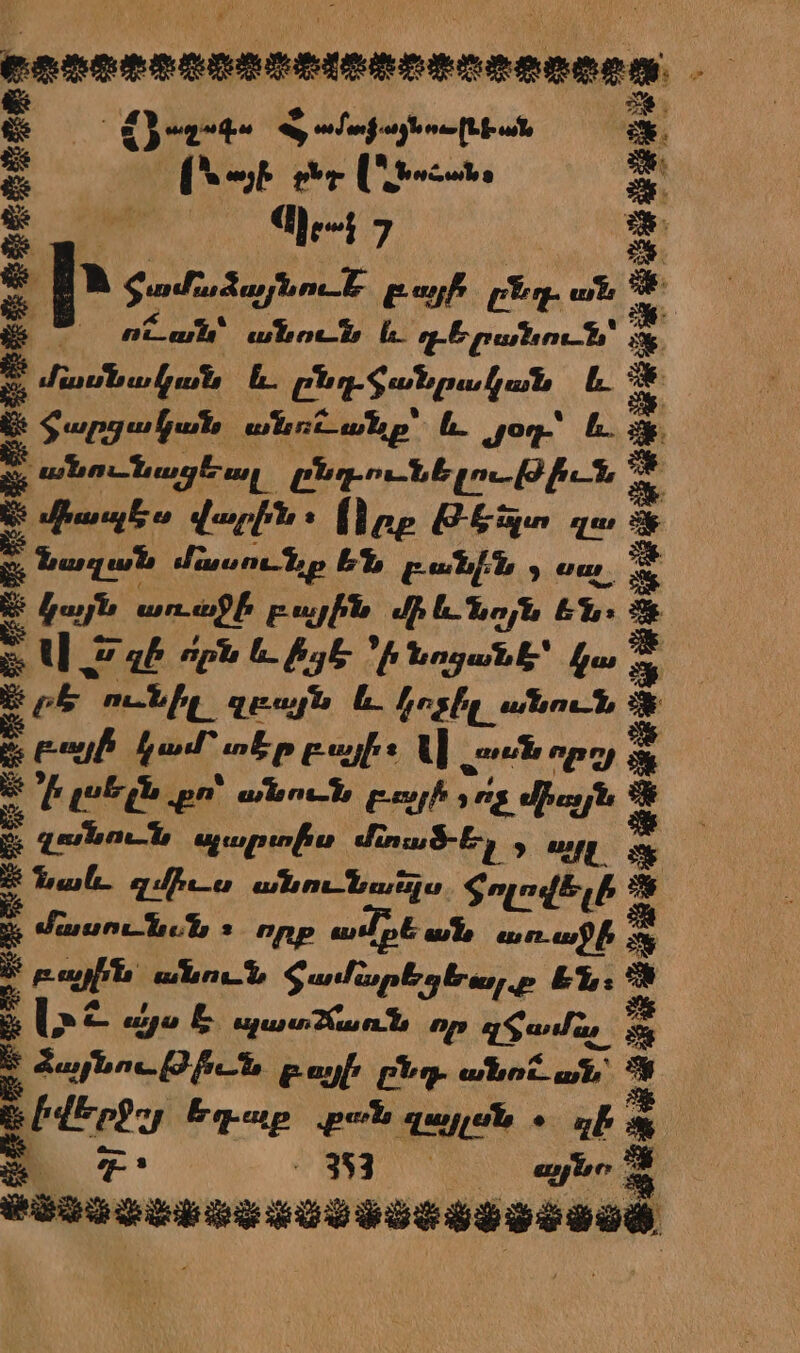 Յաղագս Համաձայնութեան
Բայի ընդ Անուանս
Պրակ 7
Ի համաձայնուէ բայի ընդ ան
ուան՝ անուն և դերանուն՝
մասնական և ընդհանրական և
հարցական անուանք՝ և յօդ՝ և
անունացեալ ընդունելութիւն
միապէս վարին։ Որք թէպտ զա
նազան մասունք են բանին, սա
կայն առաջի բային միևնոյն են։
Այս զի որն և իցէ ՚ի նոցանէ՝ կա
րէ ունիլ զբայն և կոչիլ անուն
բայի կամ տէր բայի։ Այասն որոյ
՚ի լսելն քո՝ անուն բայի, ոչ միայն
զանուն պարտիս մտածել, այլ
նաև զմիւս անունապս հոլովելի
մասունսն։ որք ամքեան առաջի
բային անուն համարեցեալք են։
Եւ այս է պատճառն որ զհամա
ձայնութիւն բայի ընդ անուան՝
իվերջոյ եդաք քան զայլսն. զի
353
այնո